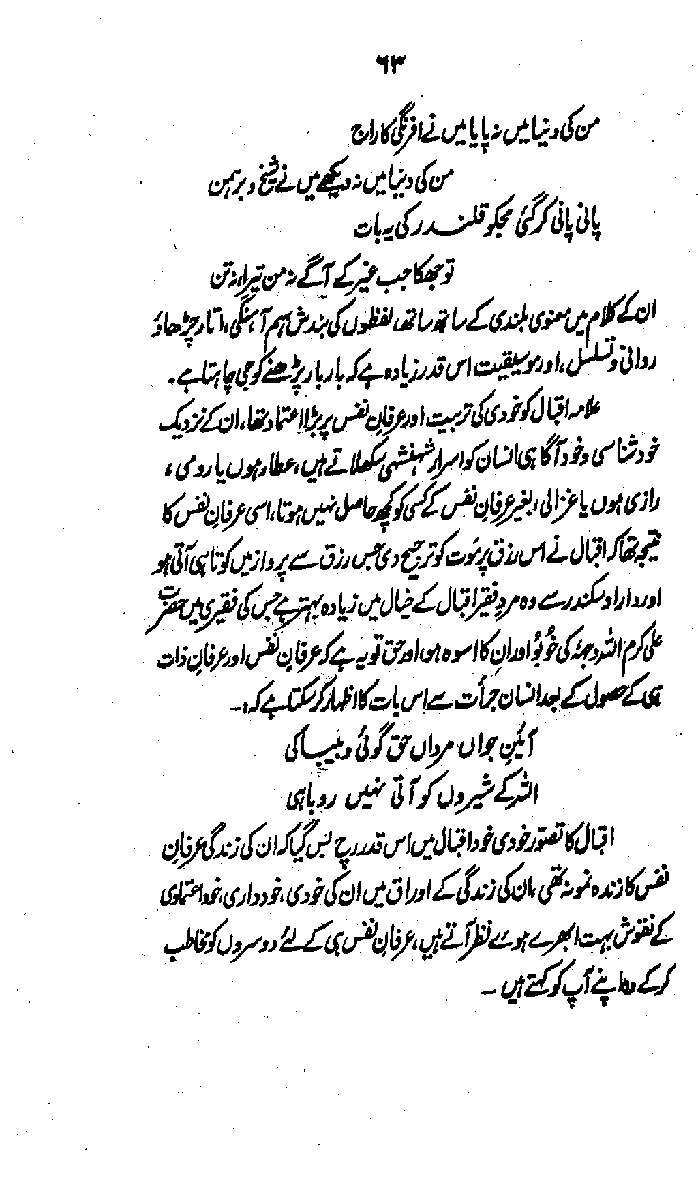 ۶۳
من کی دنیا میں نہ پایا میں نے افرنگی کا راج
من کی دنیا میں نہ دیکھے میں نے شیخ و برہمن
پانی پانی کر گئی مجکو قلندر کی یہ بات
تو جھکا جب غیر کے آگے نہ من تیرا نہ تن
ان کے کلام میں معنوی بلندی کے ساتھ ساتھ لفظوں کی بندش ہم آہنگی، اتار چڑھاؤ
روانی و تسلسل، اور موسیقیت اس قدر زیادہ ہے کہ بار بار پڑھنے کو جی چاہتا ہے۔
علامہ اقبال کو خودی کی تربیت اور عرفان نفس پر بڑا اعتماد تھا، ان کے نزدیک
خود شناسی و خود آگاہی انسان کو اسرار شہنشہی سکھلاتے ہیں، عطار ہوں یا رومی،
رازی ہوں یا غزالی، بغیر عرفان نفس کے کسی کو کچھ حاصل نہیں ہوتا، اسی عرفان نفس کا
نتیجہ تھا کہ اقبال نے اس رزق پر موت کو ترجیح دی جس رزق سے پرواز میں کوتاہی آتی ہو
اور دارا و سکندر سے وہ مرد فقیر اقبال کے خیال میں زیادہ بہتر ہے جس کی فقیری میں حضرت
علی کرم اللہ وجہہٗ کی خُو بُو اور ان کا اسوہ ہو اور حق تو یہ ہے کہ عرفان نفس اور عرفان ذات
ہی کے حصول کے بعد انسان جرأت سے اس بات کا اظہار کر سکتا ہے کہ:۔
آئینِ جواں مرداں حق گوئی و بیباکی
اللہ کے شیروں کو آتی نہیں روباہی
اقبال کا تصّور خودی خود اقبال میں اس قدر رچ بس گیا کہ ان کی زندگی عرفانِ
نفس کا زندہ نمونہ تھی، ان کی زندگی کے اوراق میں ان کی خودی، خودداری، خود اعتمادی
کے نقوش بہت ابھرے ہوئے نظر آتے ہیں، عرفانِ نفس ہی کے لئے دوسروں کو مخاطب
کر کے وہ اپنے آپ کو کہتے ہیں ۔